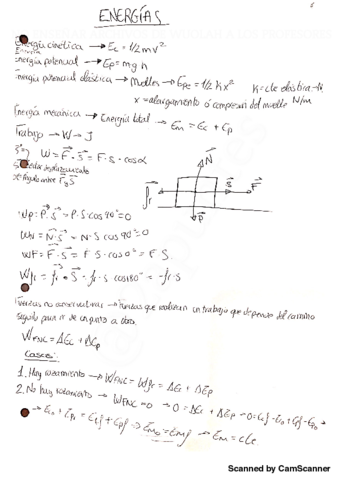 ENERGÍAS
Energía cinética → Ec = 1/2 mv²
Energía potencial → Ep = m g h
Energía potencial elástica → Muelles → Epe = 1/2 Kx² K = cte elástica → N/m
x = alargamiento ó compresión del muelle
Energía mecánica → Energía total → Em = Ec + Ep
Trabajo → W → J
W = F · S = F · S · cosα
vector desplazamiento
ángulo entre F y S
N
fr S F
P
Wp = P · S = P · S · cos 90° = 0
WN = N · S = N · S cos 90° = 0
WF = F · S = F · S · cos 0° = F S.
Wfr = fr · S = fr · S cos 180° = -fr · S
Fuerzas no conservativas → Fuerzas que realizan un trabajo que depende del camino
seguido para ir de un punto a otro.
WFNC = ΔEc + ΔEp
Casos:
1. Hay rozamiento → WFNC = Wfr = ΔEc + ΔEp
2. No hay rozamiento → WFNC = 0 → 0 = ΔEc + ΔEp → 0 = Ecf - Eco + Epf - Epo →
→ Eco + Epo = Ecf + Epf → Emo = Emf → Em = cte
Scanned by CamScanner